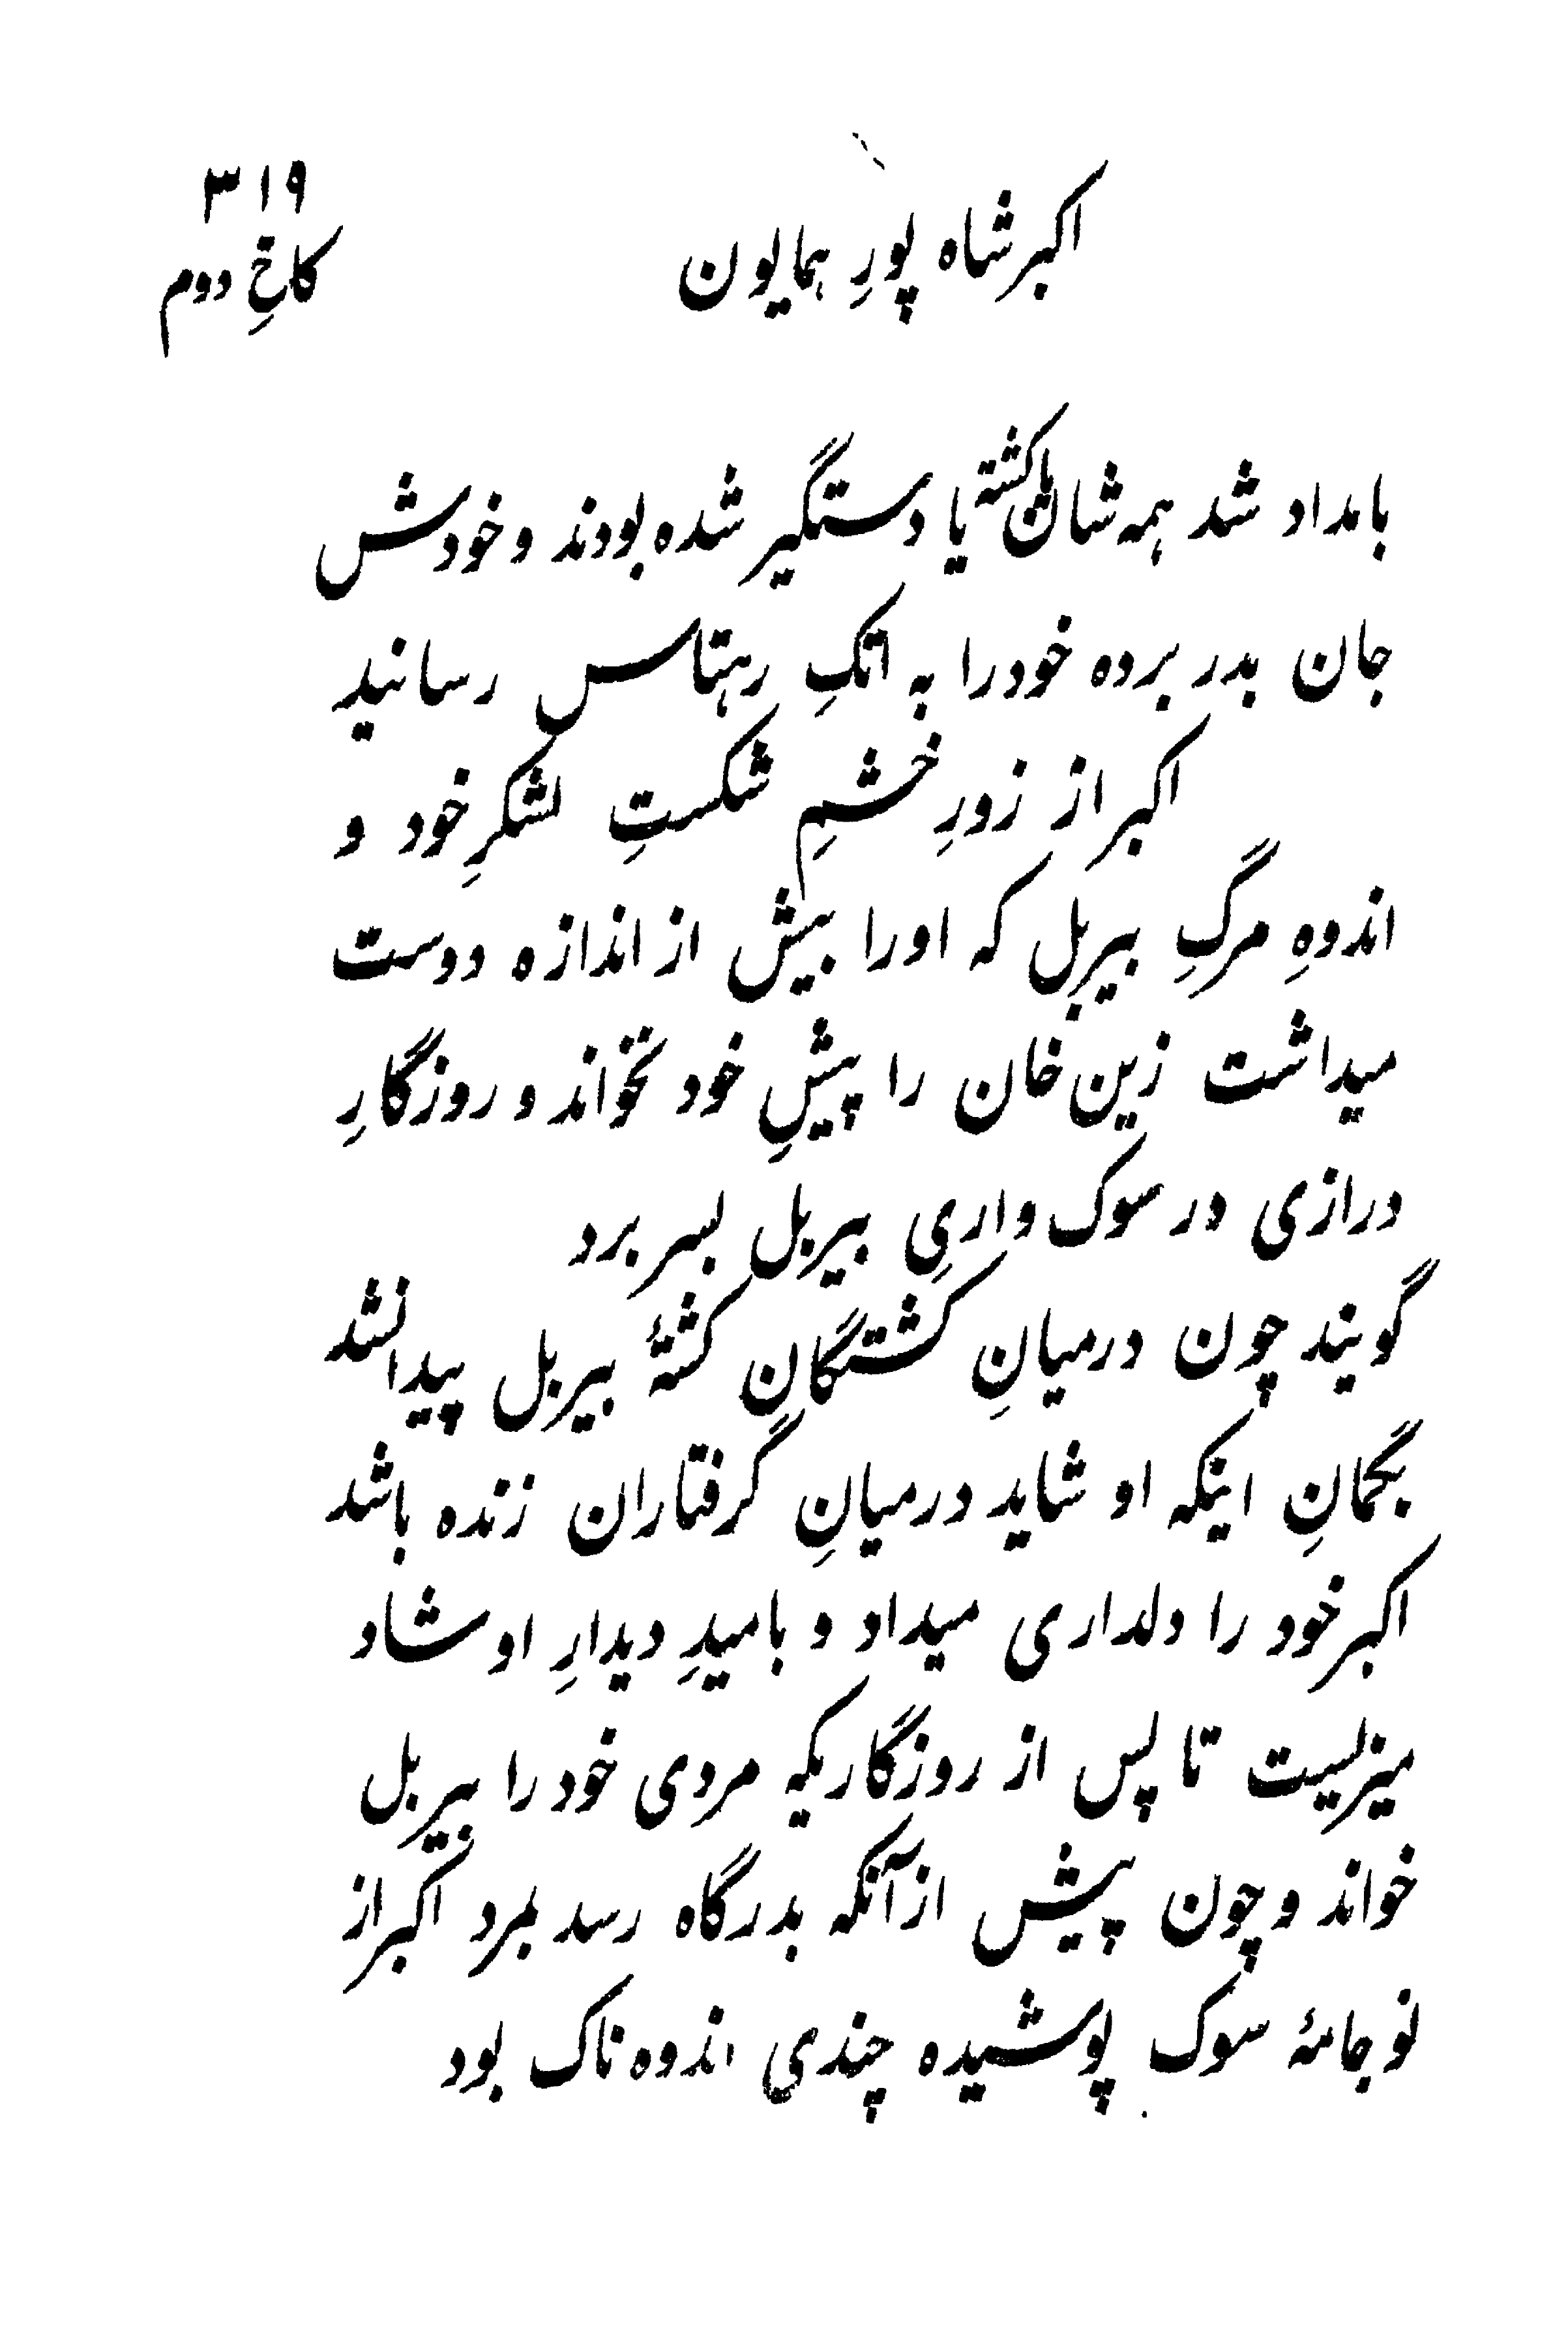 ۳۱۹
اکبرشاه پورِ همایون
کاخِ دوم
بامداد شد همه شان یا کشته یا دستگیر شده بودند و خودش
جان بدر برده خودرا به اتکِ رهتاس رسانید
اکبر از زورِ خشمِ شکستِ لشکرِ خود و
اندوهِ مرگِ بیربل که اورا بیش از اندازه دوست
میداشت زین خان را پیشِ خود نخواند و روزگارِ
درازی در سوک واریِ بیربل بسر برد
گویند چون درمیانِ کشتگان کشتهٔ بیربل پیدا نشد
بگمانِ اینکه او شاید درمیانِ گرفتاران زنده باشد
اکبر خود را دلداری میداد و بامیدِ دیدارِ او شاد
میزیست تا پس از روزگاریکه مردی خود را بیربل
خواند و چون پیش ازآنکه بدرگاه رسد بمرد اکبر از
نو جامهٔ سوک پوشیده چندی اندوه ناک بود